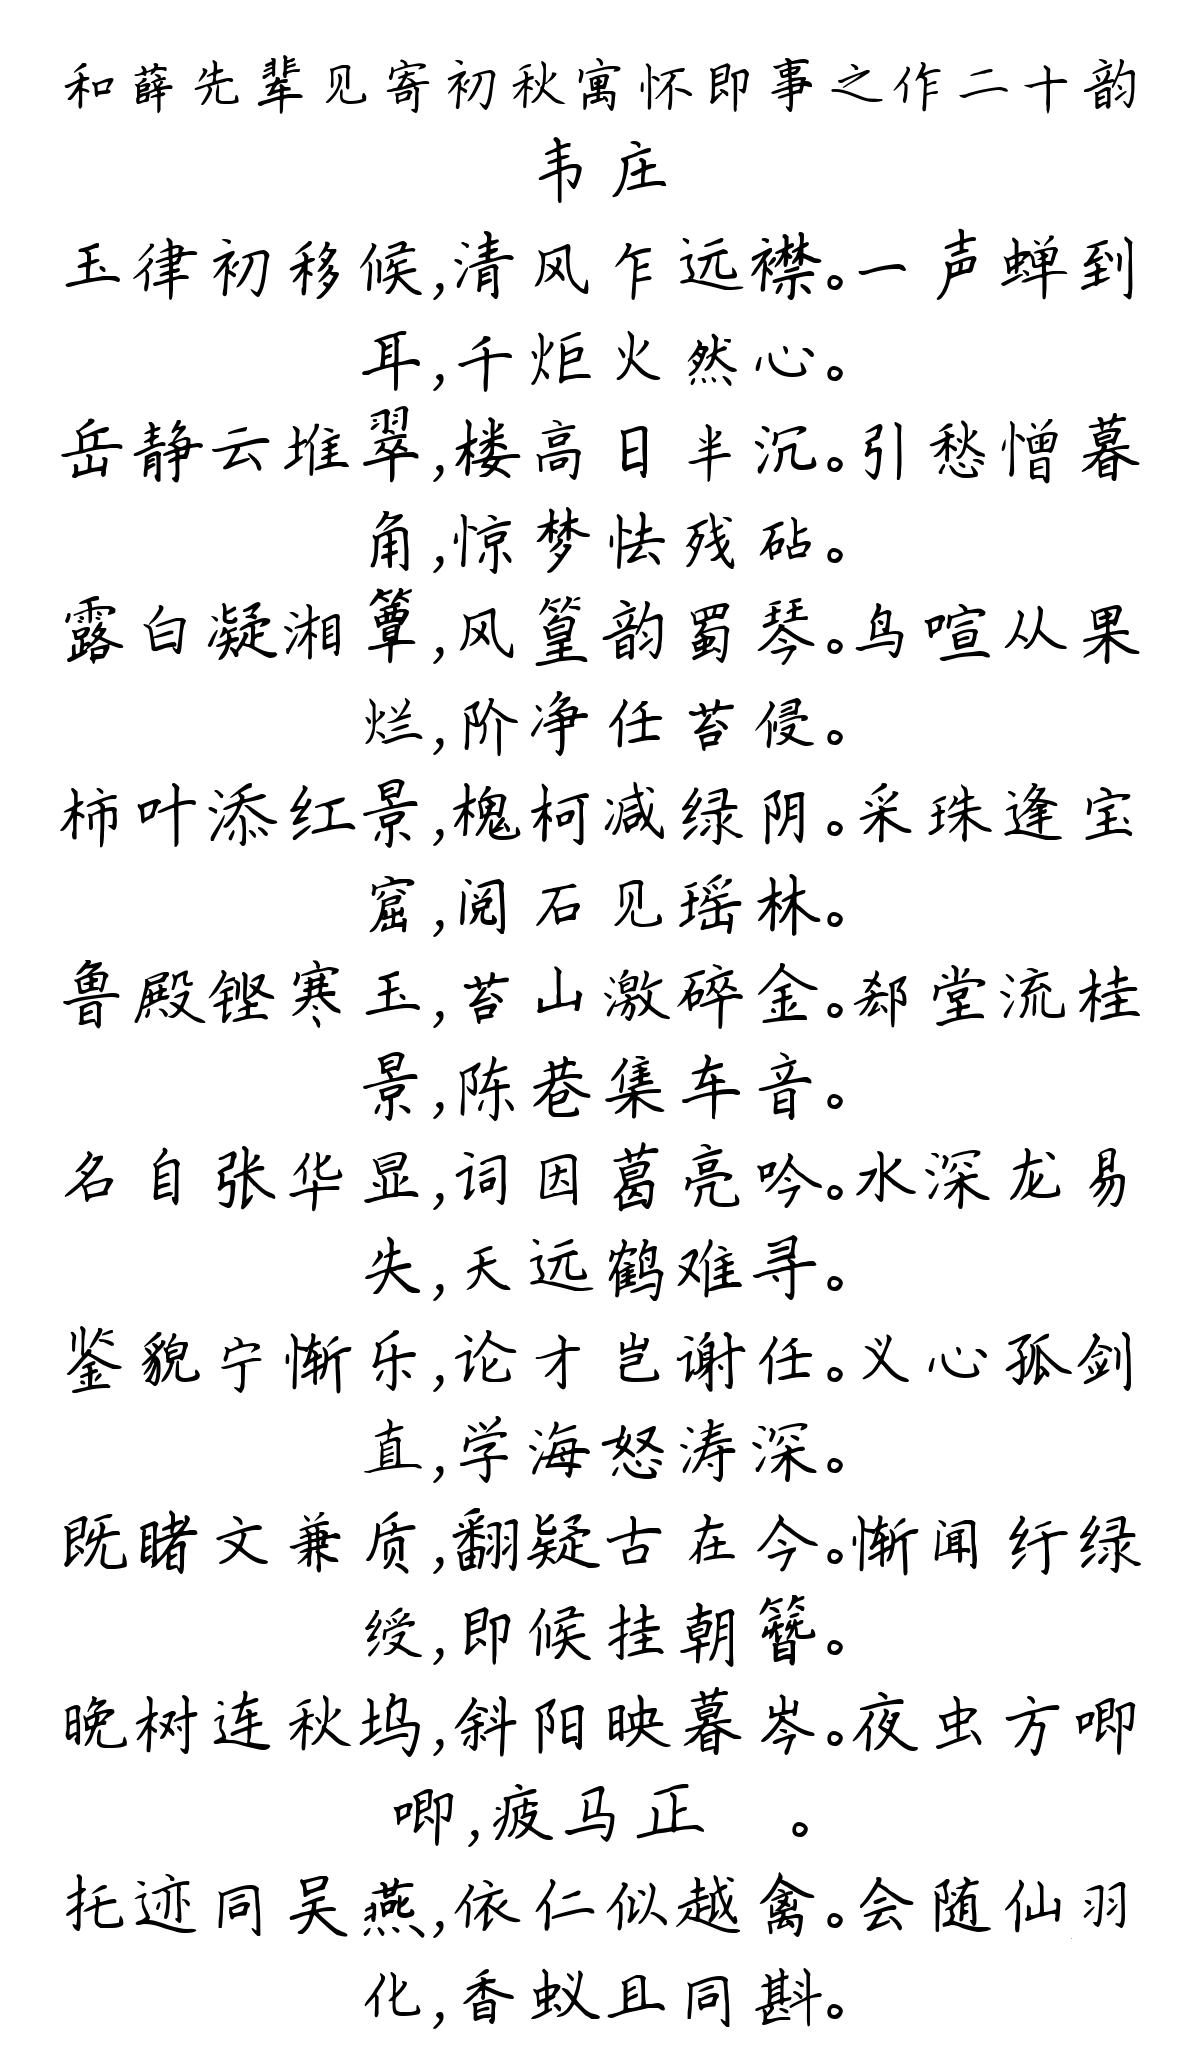 和薛先辈见寄初秋寓怀即事之作二十韵
韦庄
玉律初移候,清风乍远襟。一声蝉到
耳,千炬火然心。
岳静云堆翠,楼高日半沉。引愁憎暮
角,惊梦怯残砧。
露白凝湘簟,风篁韵蜀琴。鸟喧从果
烂,阶净任苔侵。
柿叶添红景,槐柯减绿阴。采珠逢宝
窟,阅石见瑶林。
鲁殿铿寒玉,苔山激碎金。郄堂流桂
景,陈巷集车音。
名自张华显,词因葛亮吟。水深龙易
失,天远鹤难寻。
鉴貌宁惭乐,论才岂谢任。义心孤剑
直,学海怒涛深。
既睹文兼质,翻疑古在今。惭闻纡绿
绶,即候挂朝簪。
晚树连秋坞,斜阳映暮岑。夜虫方唧
唧,疲马正 。
托迹同吴燕,依仁似越禽。会随仙羽
化,香蚁且同斟。